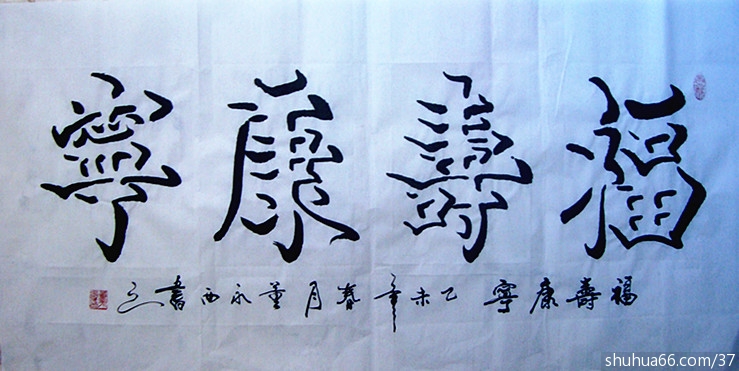 福壽康寧
福壽康寧 乙未年春月董永西書之
shuhua66.com/37